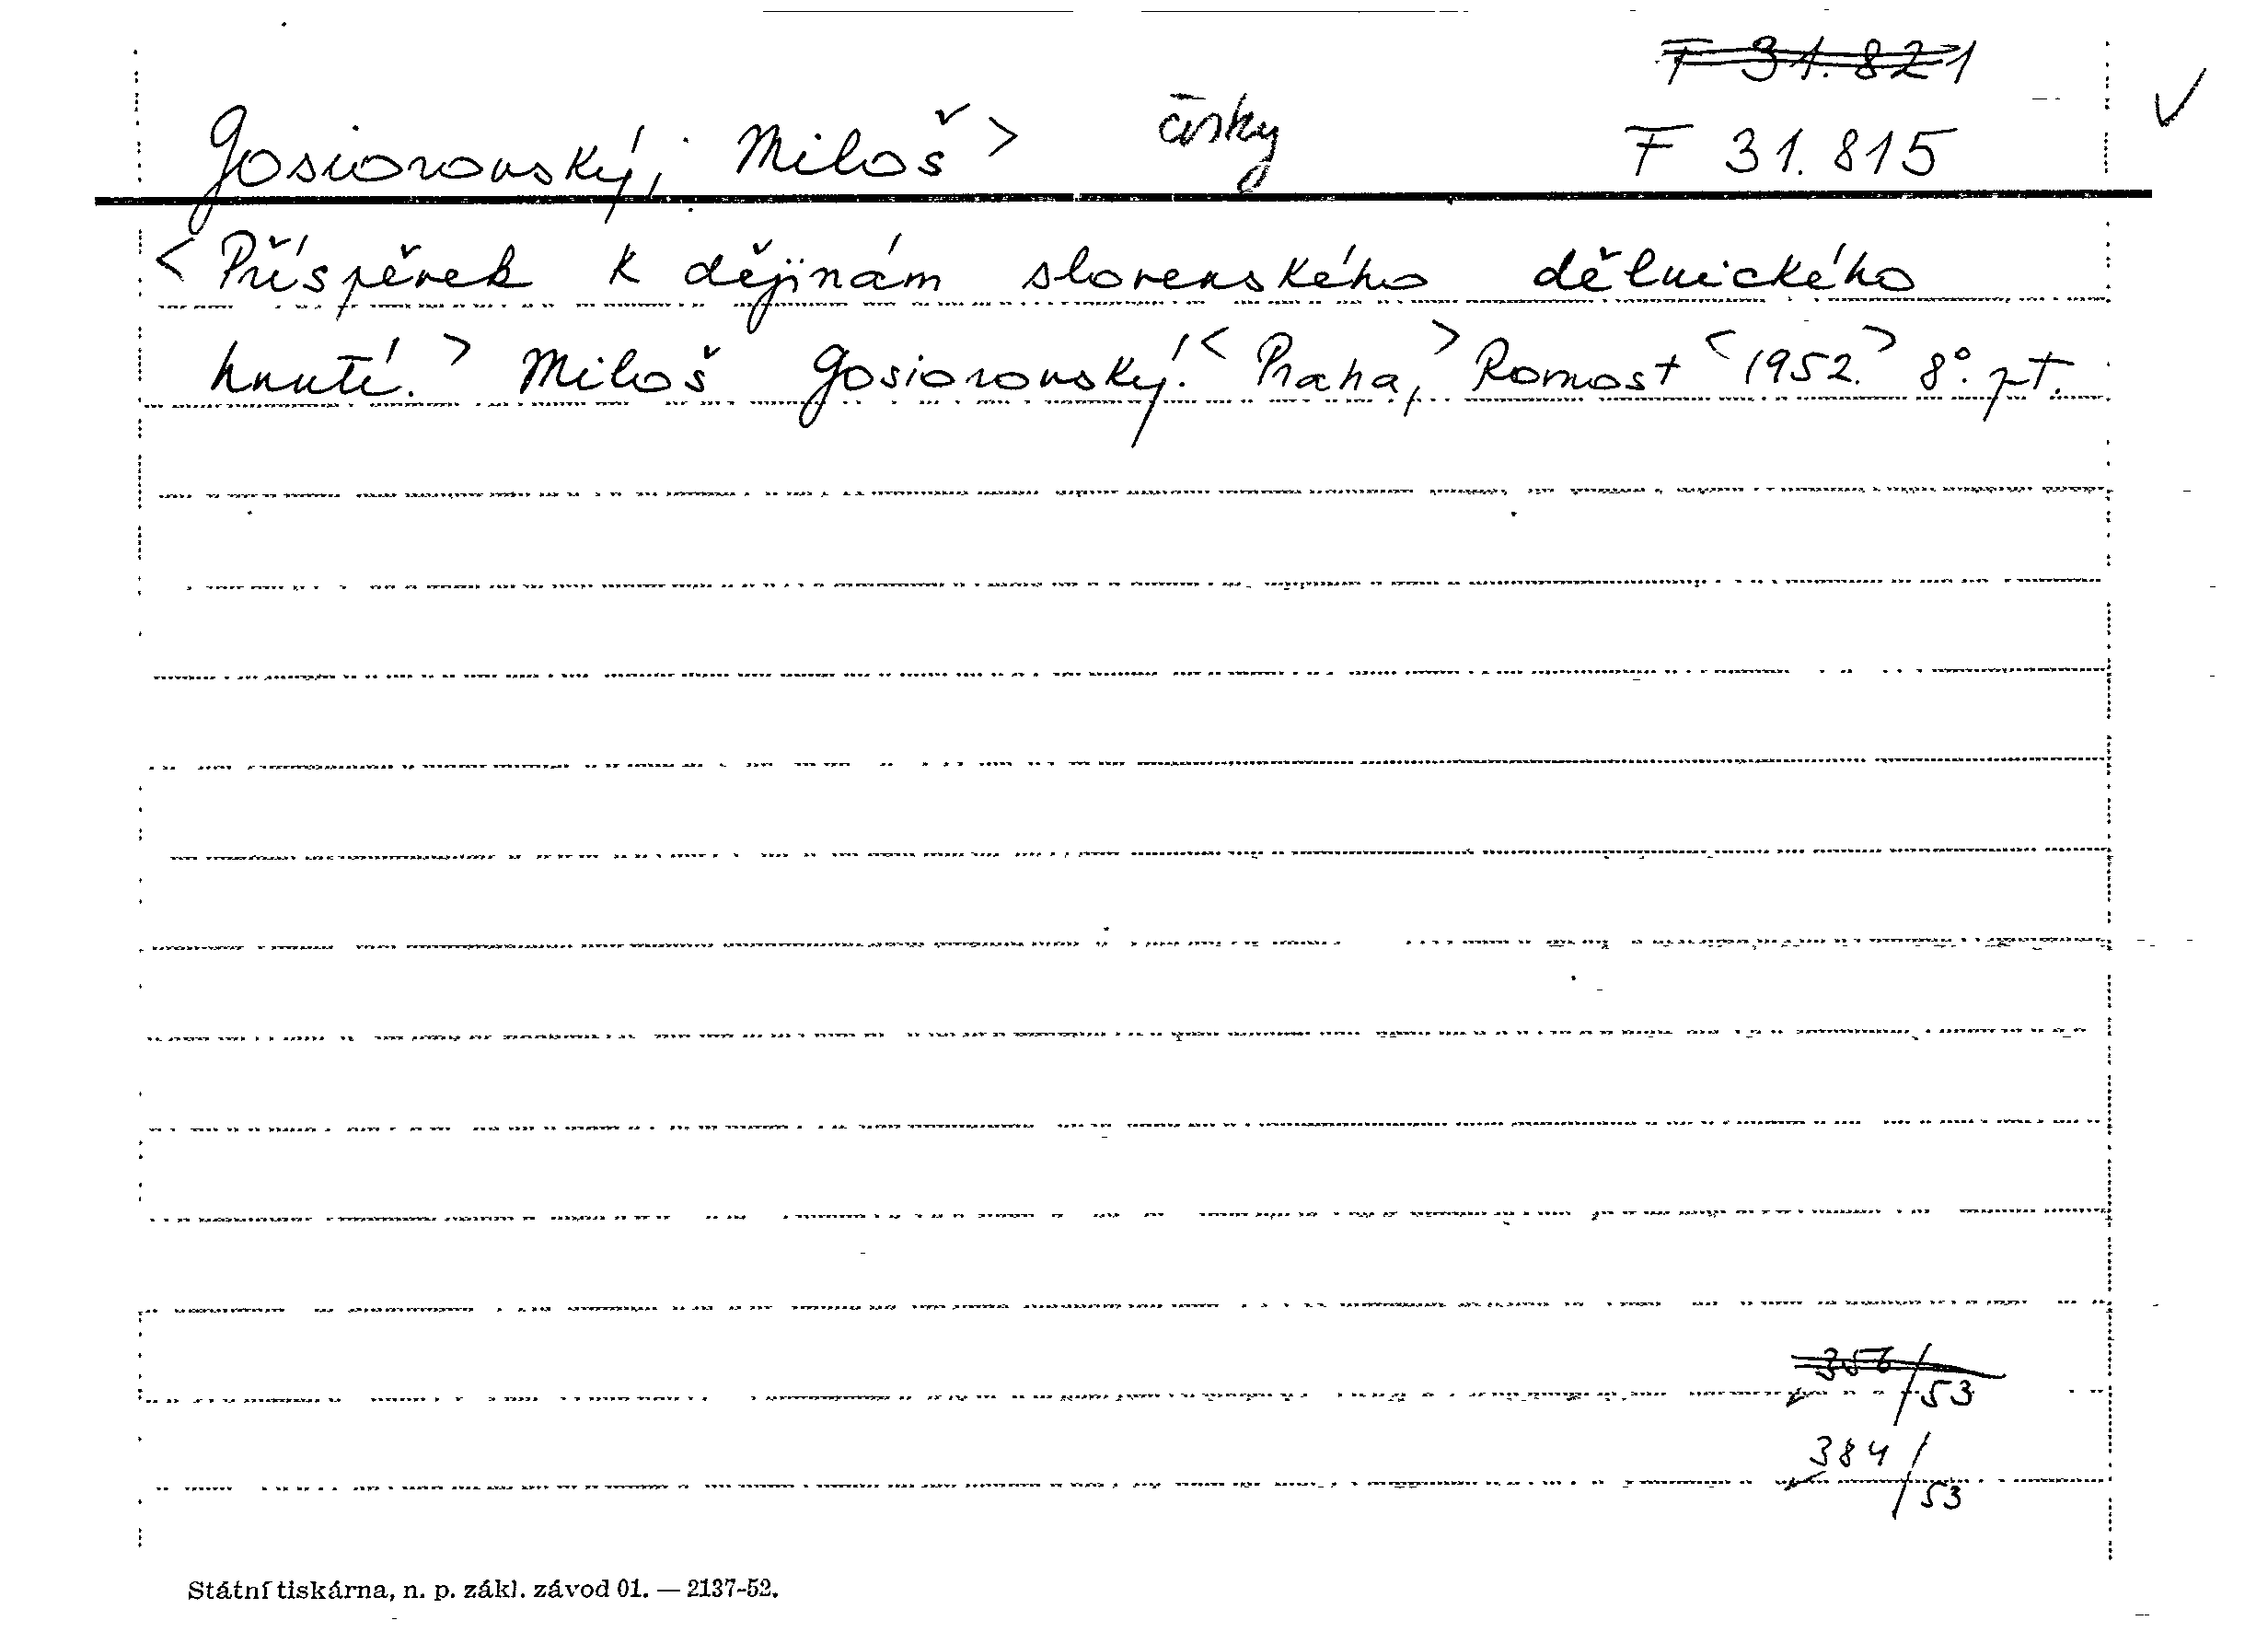 F 31.821
Gosiorovský, Miloš > česky F 31.815
< Příspěvek k dějinám slovenského dělnického
hnutí. > Miloš Gosiorovský. < Praha, > Rovnost < 1952. > 8°. pt.
356/53
384/53
Státní tiskárna, n. p. zákl. závod 01. — 2137-52.